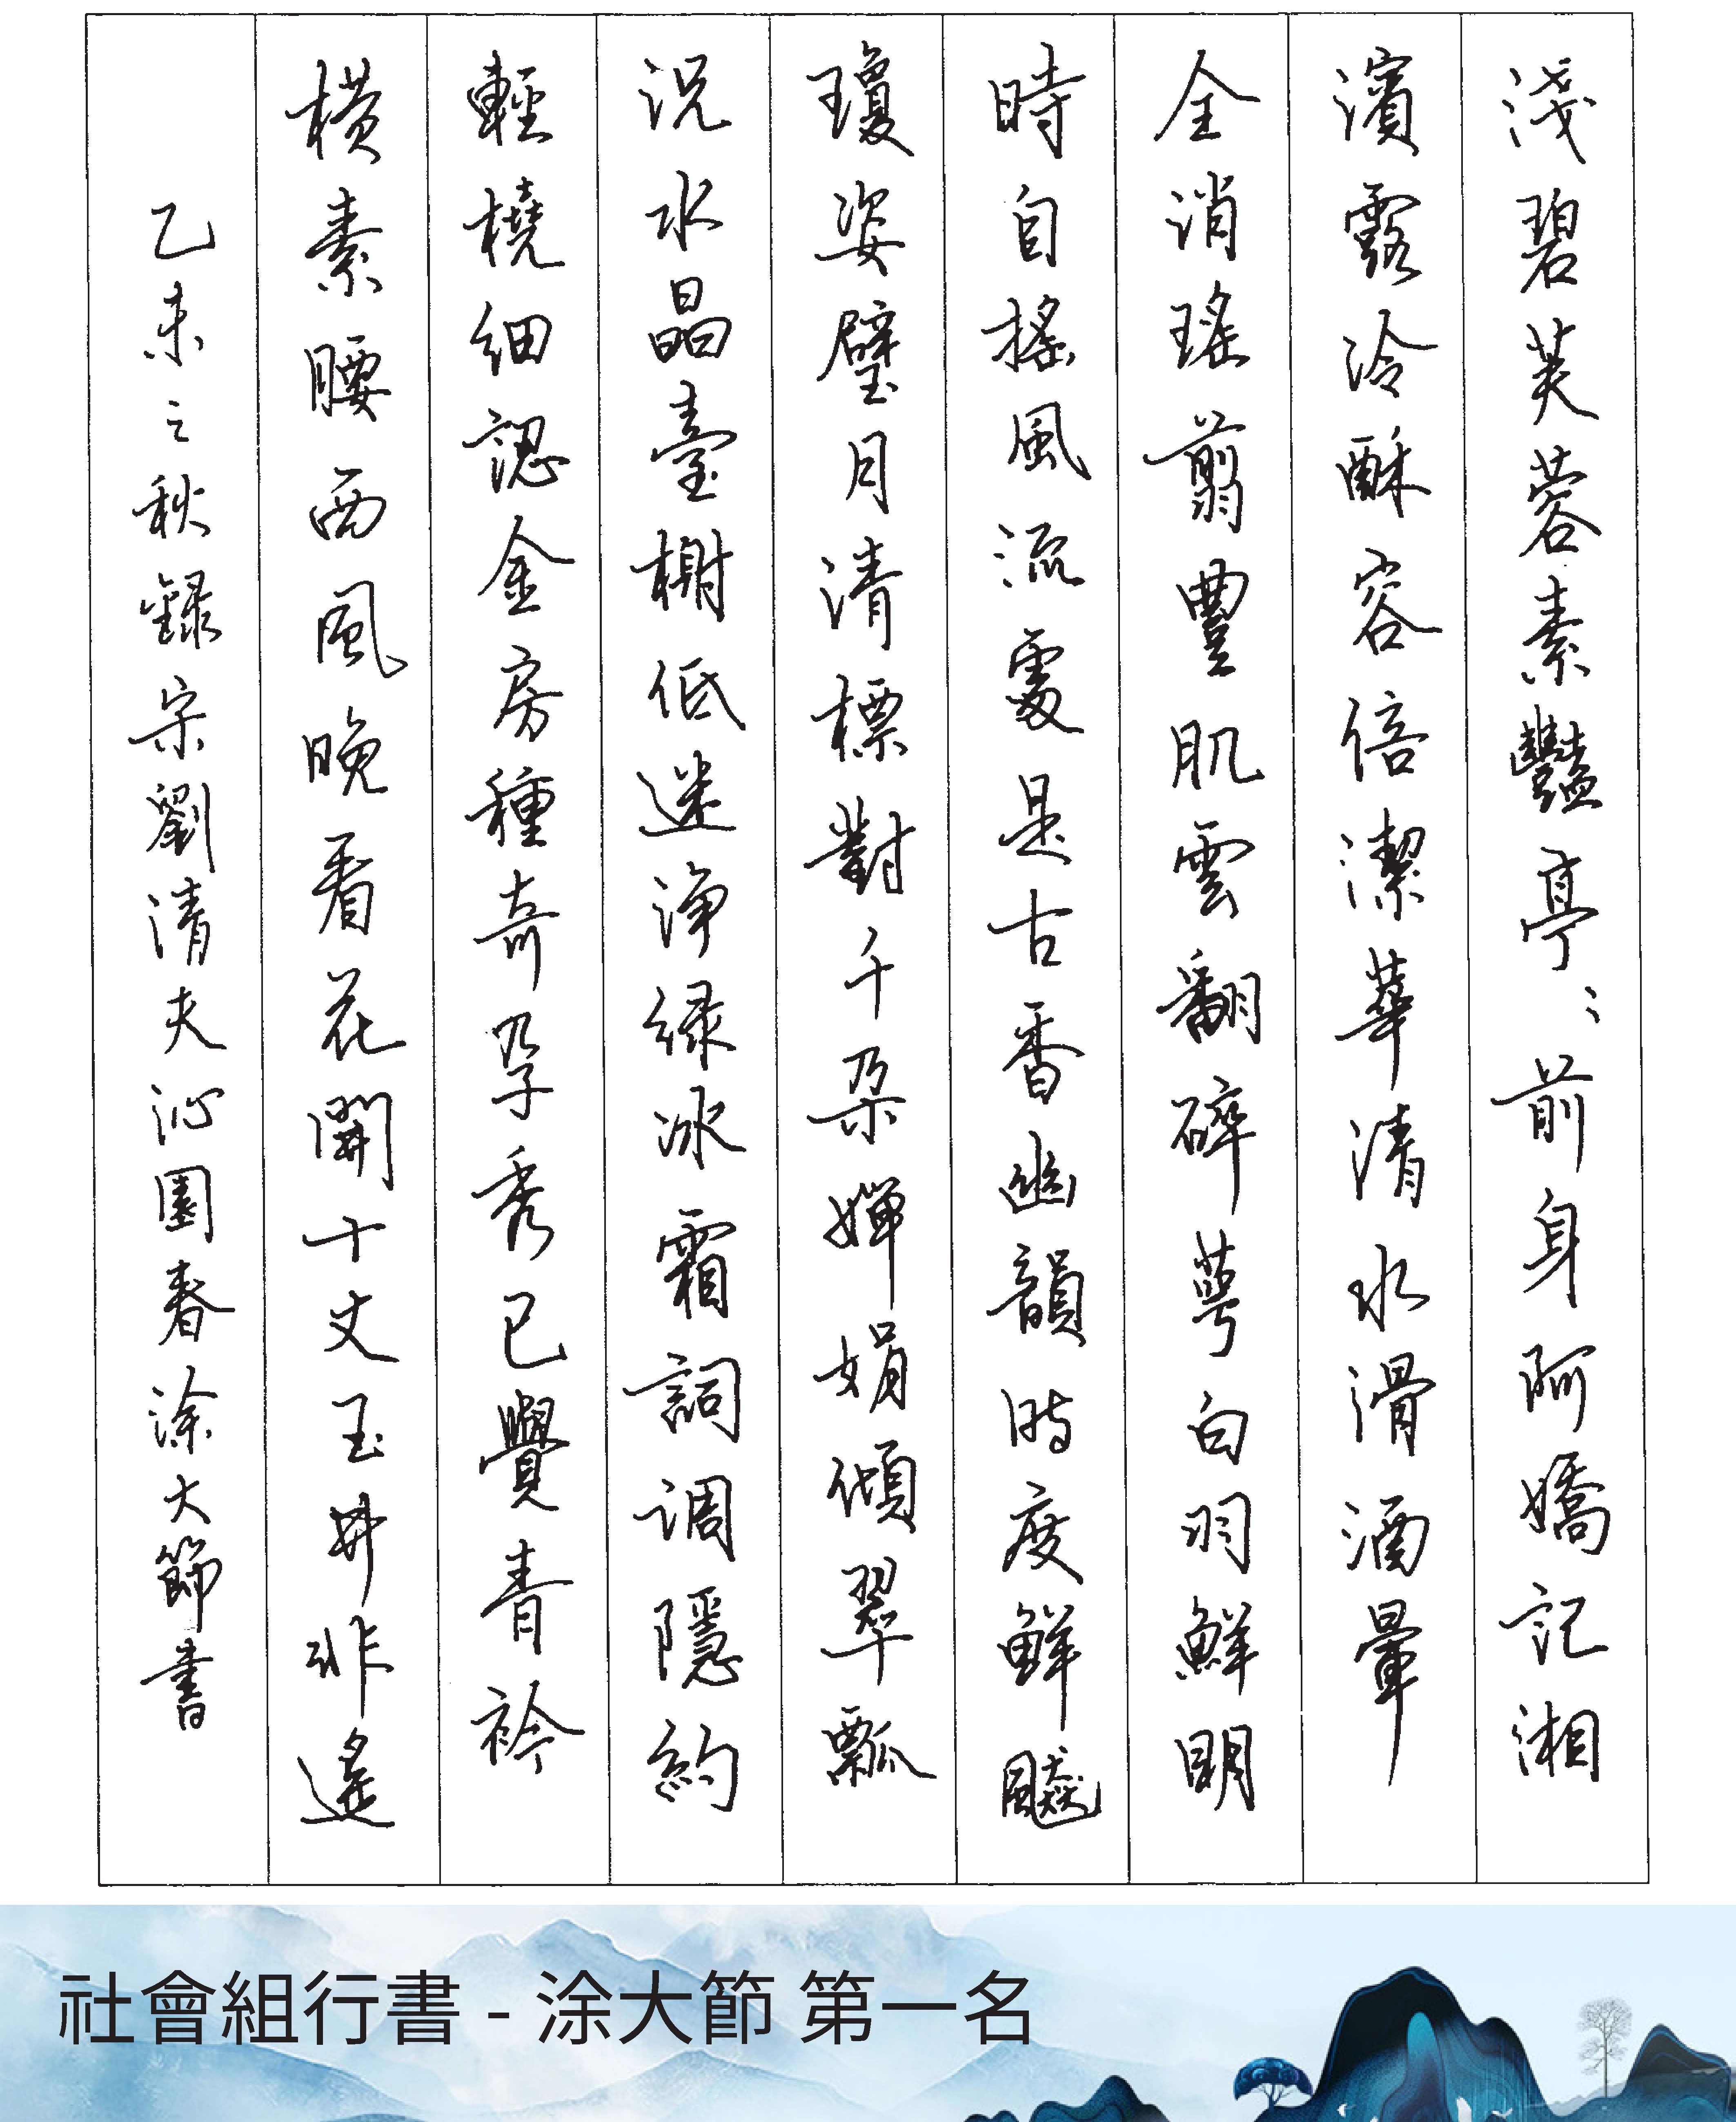 淺碧芙蓉素豔亭〻前身阿嬌記湘
濱露冷酥容倍潔華清水滑酒暈
全消瑤翦豐肌雲翻碎萼白羽鮮明
時自搖風流處是古香幽韻時度鮮飈
瓊姿璧月清標對千朵嬋娟傾翠瓢
況水晶臺榭低迷淨綠冰霜詞調隱約
輕橈細認金房種奇孕秀已覺青衿
橫素腰西風晚看花開十丈玉井非遙
乙未之秋錄宋劉清夫沁園春涂大節書
社會組行書 - 涂大節 第一名